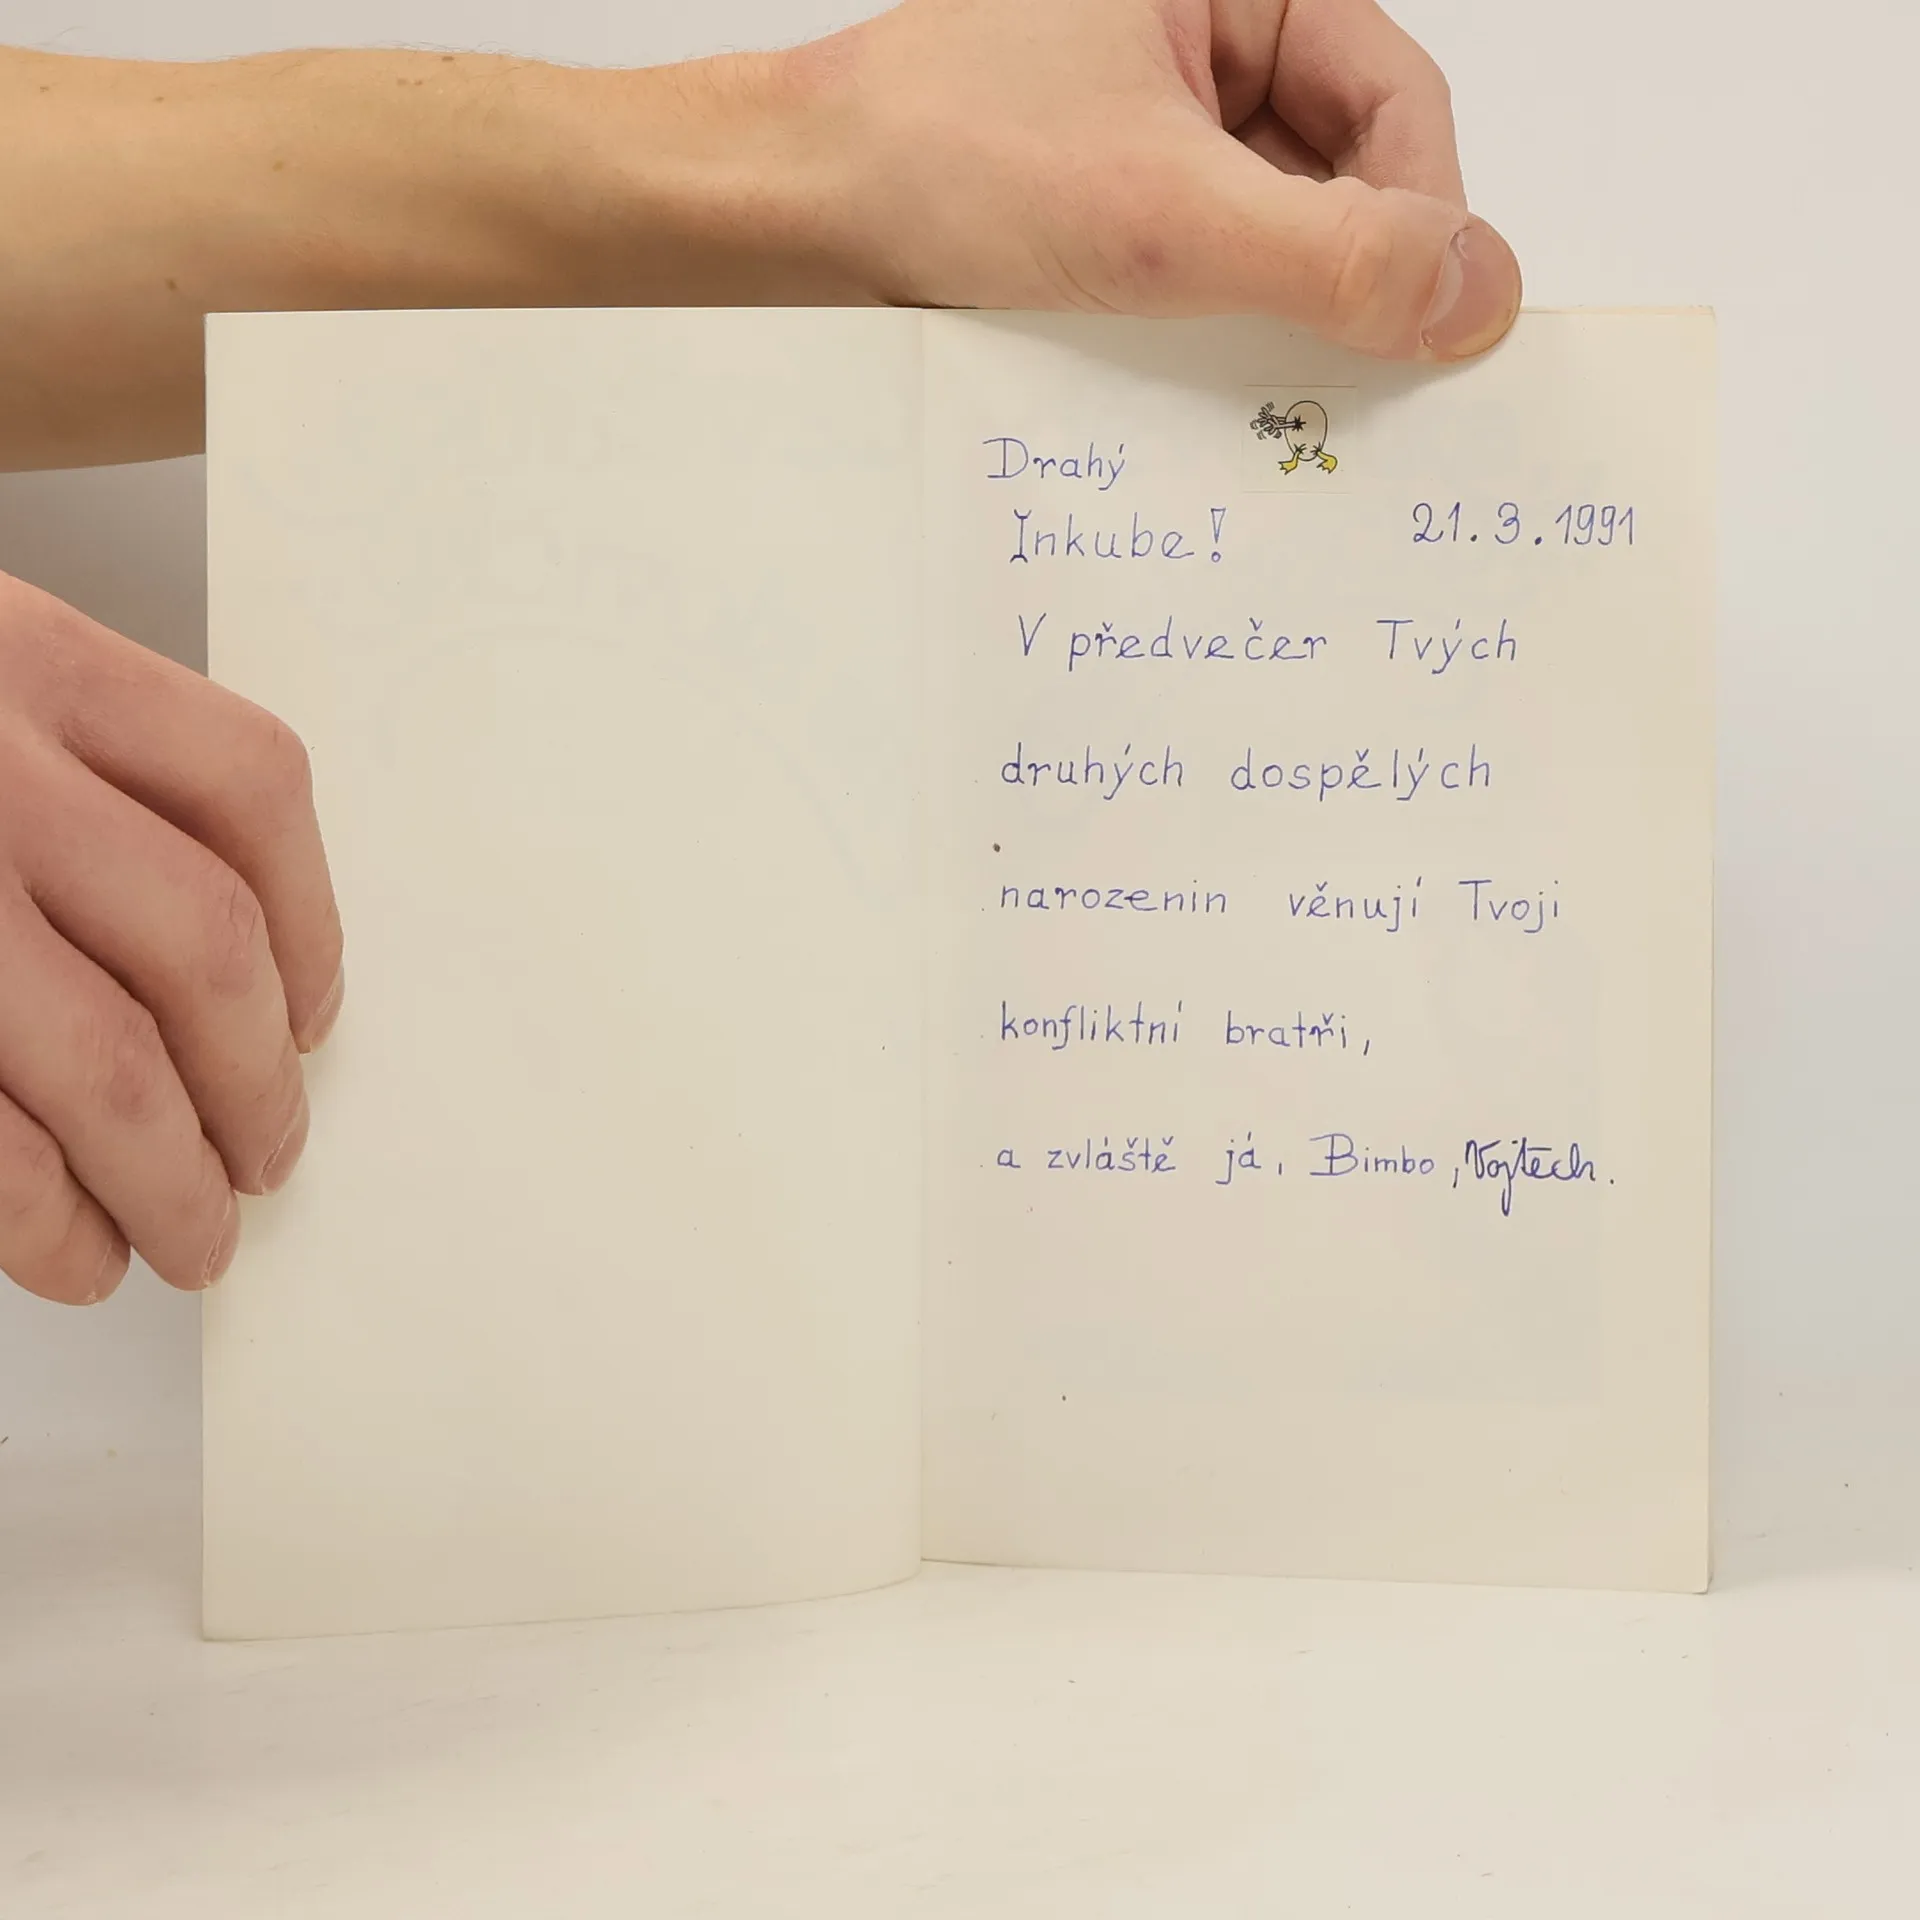 Drahý
Inkube!
21.3.1991
V předvečer Tvých
druhých dospělých
narozenin věnují Tvoji
konfliktní bratři,
a zvláště já, Bimbo, Vojtěch.